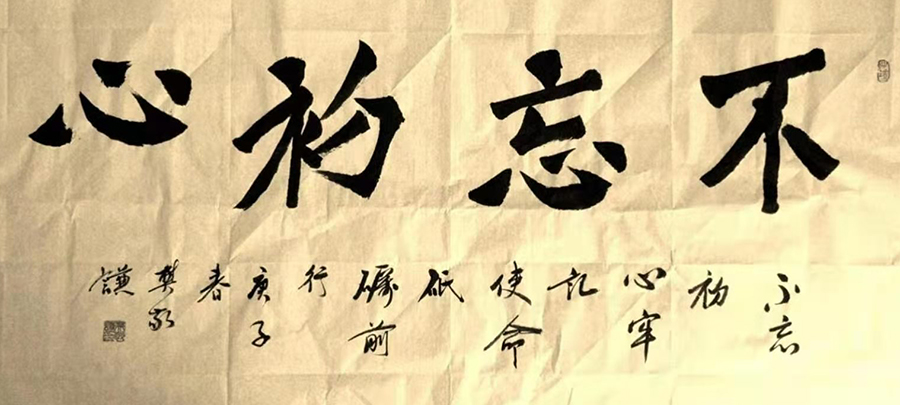 不忘初心
不忘
初
心牢
记
使命
砥
砺前
行
庚子
春
樊敬
谦